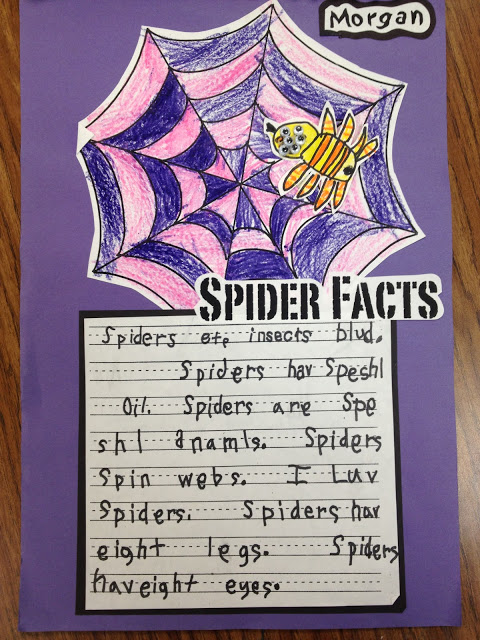 Morgan
SPIDER FACTS
Spiders et, insects blud.
Spiders hav Speshl
Oil. Spiders are Spe
shl anamls. Spiders
Spin webs. I Luv
Spiders. Spiders hav
eight legs. Spiders
haveight eyes.